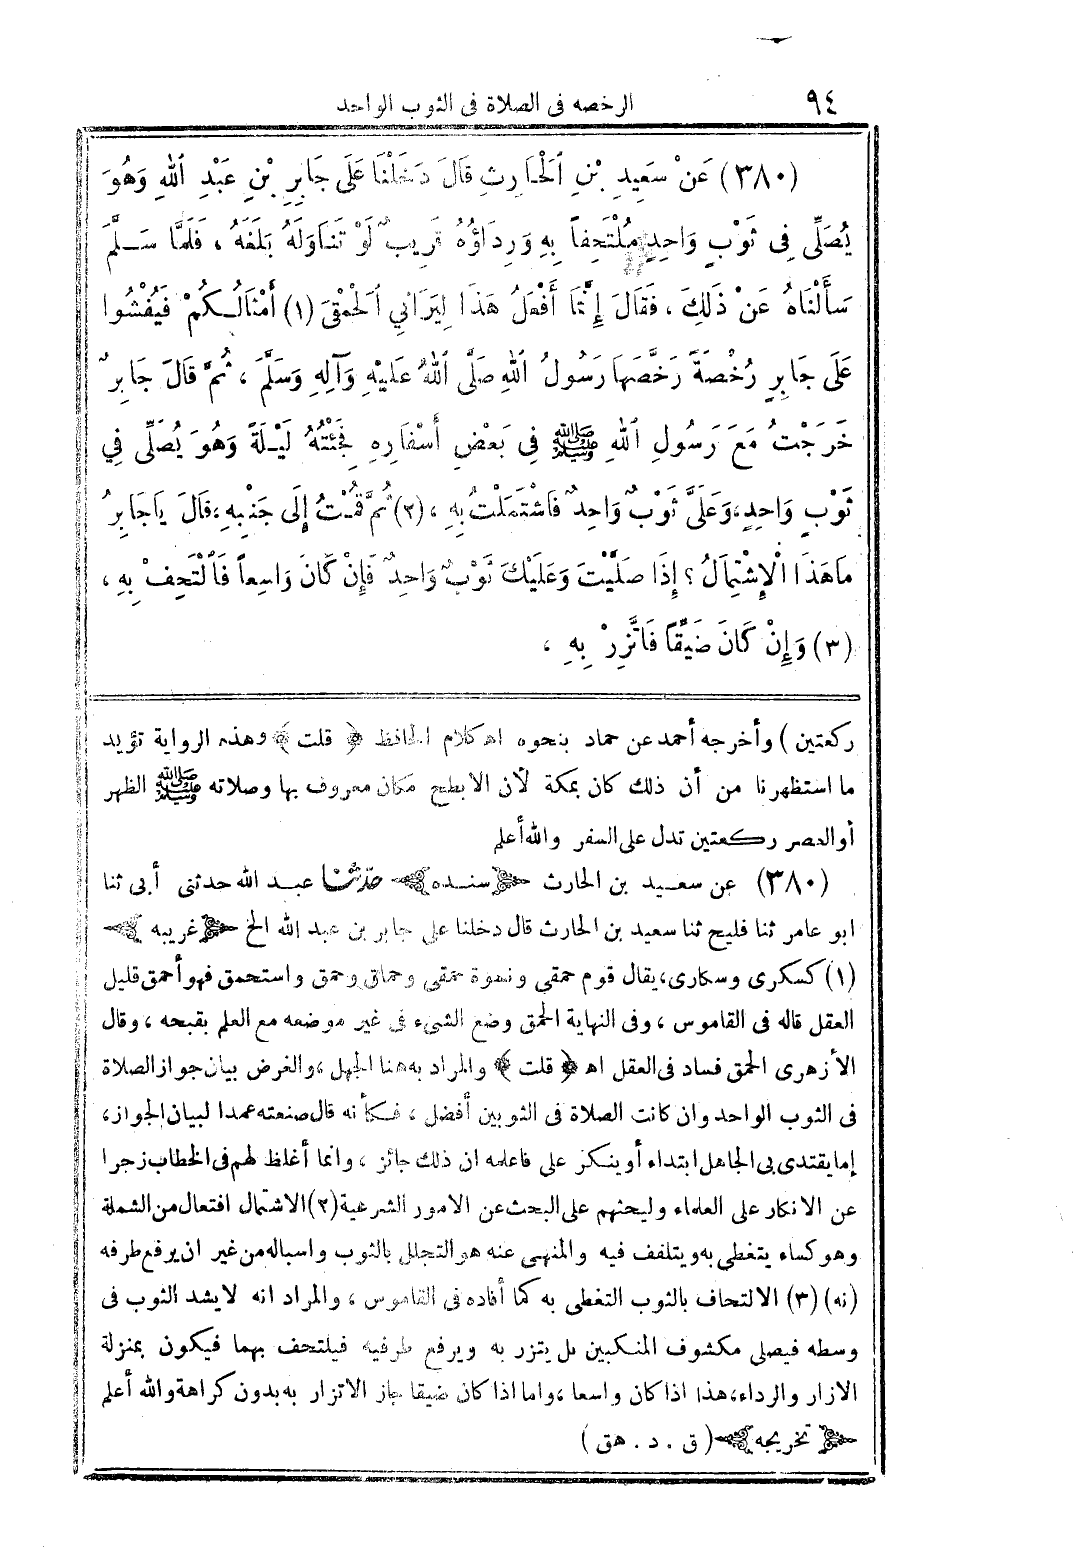 ٩٤ الرخصه فى الصلاة فى الثوب الواحد
(٣٨٠) عَنْ سَعِيدِ بْنِ اَلْحَارِثِ قَالَ دَخَلْنَا عَلَى جَابِرِ بْنِ عَبْدِ اَللهِ وَهُوَ
يُصَلِّى فِى ثَوْبٍ وَاحِدٍ مُلْتَحِفاً بِهِ وَرِدَاؤُهُ قَرِيبٌ لَوْ تَنَاوَلَهُ بَلَغَهُ ، فَلَمَّا سَلَّمَ
سَأَلْنَاهُ عَنْ ذَلِكَ ، فَقَالَ إِنَّمَا أَفْعَلُ هَذَا لِيَرَانِي اَلْحَمْقَى (١) أَمْثَالُكُمْ فَيُفْشُوا
عَلَى جَابِرٍ رُخْصَةً رَخَّصَهَا رَسُولُ اَللهِ صَلَّى اَللهُ عَلَيْهِ وَآلِهِ وَسَلَّمَ ، ثُمَّ قَالَ جَابِرٌ
خَرَجْتُ مَعَ رَسُولِ اَللهِ ﷺ فِى بَعْضِ أَسْفَارِهِ فَجِئْتُهُ لَيْلَةً وَهُوَ يُصَلِّى فِي
ثَوْبٍ وَاحِدٍ،وَعَلَىَّ ثَوْبٌ وَاحِدٌ فَاشْتَمَلْتُ بِهِ ،(٢) ثُمَّ قُمْتُ إِلَى جَنْبِهِ،قَالَ يَاجَابِرُ
مَاهَذَا الْإِشْتِمَالُ ؟ إِذَا صَلَّيْتَ وَعَلَيْكَ ثَوْبٌ وَاحِدٌ فَإِنْ كَانَ وَاسِعاً فَالْتَحِفْ بِهِ ،
(٣) وَإِنْ كَانَ ضَيِّقًا فَاتَّزِرْ بِهِ ،
ركعتين ) وأخرجه أحمد عن حماد بنحوه اهـ كلام الحافظ ﴿ قلت ﴾ وهذه الرواية تؤيد
ما استظهرنا من أن ذلك كان بمكة لأن الابطح مكان معروف بها وصلاته ﷺ الظهر
أوالعصر ركعتين تدل على السفر والله أعلم
(٣٨٠) عن سعيد بن الحارث ﴿سنده﴾ حدّثنا عبد الله حدثنى أبى ثنا
ابو عامر ثنا فليح ثنا سعيد بن الحارث قال دخلنا على جابر بن عبد الله الخ ﴿غريبه﴾
(١) كسكرى وسكارى،يقال قوم حمقى ونسوة حمقى وحماق وحمق واستحمق فهو أحمق قليل
العقل قاله فى القاموس ، وفى النهاية الحمق وضع الشىء فى غير موضعه مع العلم بقبحه ، وقال
الأزهرى الحمق فساد فى العقل اهـ ﴿ قلت ﴾ والمراد به هنا الجهل ،والغرض بيان جواز الصلاة
فى الثوب الواحد وان كانت الصلاة فى الثوبين أفضل ، فكأنه قال صنعته عمدا لبيان الجواز،
إما يقتدى بى الجاهل ابتداء أو ينكر على فاعلمه ان ذلك جائز ، وانما أغلظ لهم فى الخطاب زجرا
عن الانكار على العلماء وليحثهم على البحث عن الامور الشرعية (٢) الاشتمال افتعال من الشملة
وهو كساء يتغطى به ويتلفف فيه والمنهى عنه هو التجلل بالثوب واسباله من غير ان يرفع طرفه
(نه) (٣) الالتحاف بالثوب التغطى به كما أفاده فى القاموس ، والمراد انه لايشد الثوب فى
وسطه فيصلى مكشوف المنكبين بل يتزر به ويرفع طرفيه فيلتحف بهما فيكون بمنزلة
الازار والرداء،هذا اذا كان واسعا ،واما اذا كان ضيقا جاز الاتزار به بدون كراهة والله أعلم
﴿ تخريجه ﴾ ( ق . د . هق )